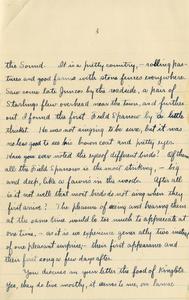 the Sound. It is a pretty country, – rolling pas-
tures and good farms with stone fences everywhere.
Saw some late Juncos by the roadside, a pair of
Starlings flew overhead near the town, and further
out I found the first Field Sparrow by a little
thicket. He was not singing to be sure, but it was
no less good to see his brown coat and pretty eyes.
Have you ever noted the eyes of different birds? Of them
all the Field Sparrow is the most striking, – big
and deep, like a fawn's in the woods. After all
is it not well that most birds do not sing when they
first arrive? The pleasure of seeing and hearing them
at the same time would be too much to appreciate at
one time, – and so we experience generally two
of one pleasant surprise – their first appearance and
their first song a few days after.
You discuss in your letter the food of Kinglets.
Yes, they do live mostly, it seems to me, on larvae